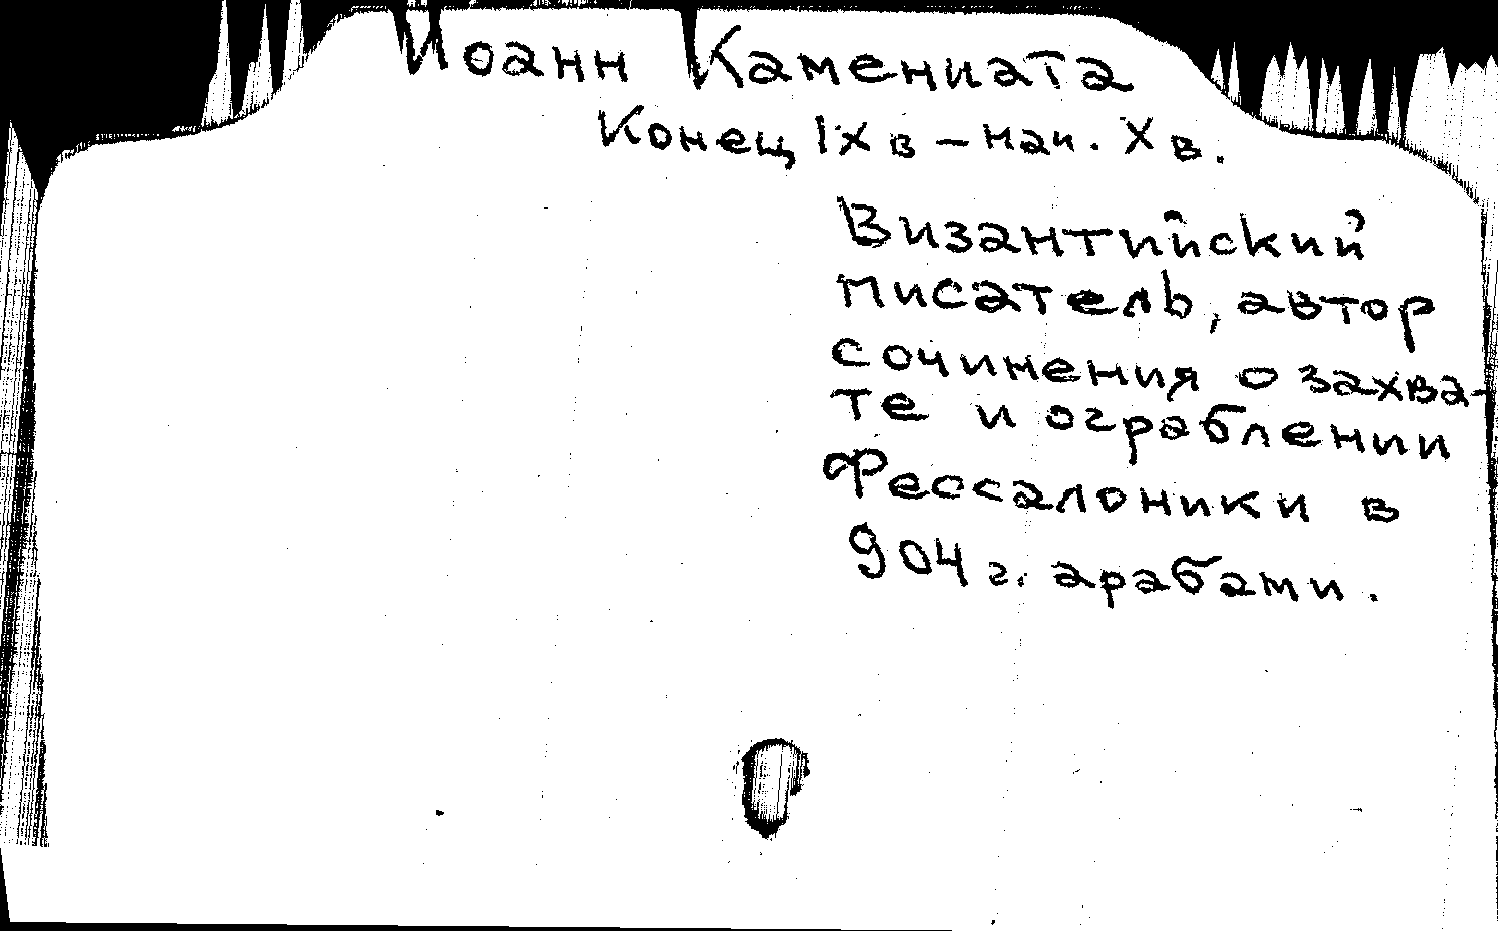 Иоанн Камениата
Конец IX в – нач. X в.
Византийский
писатель, автор
сочинения о захва-
те и ограблении
Фессалоники в
904 г. арабами.